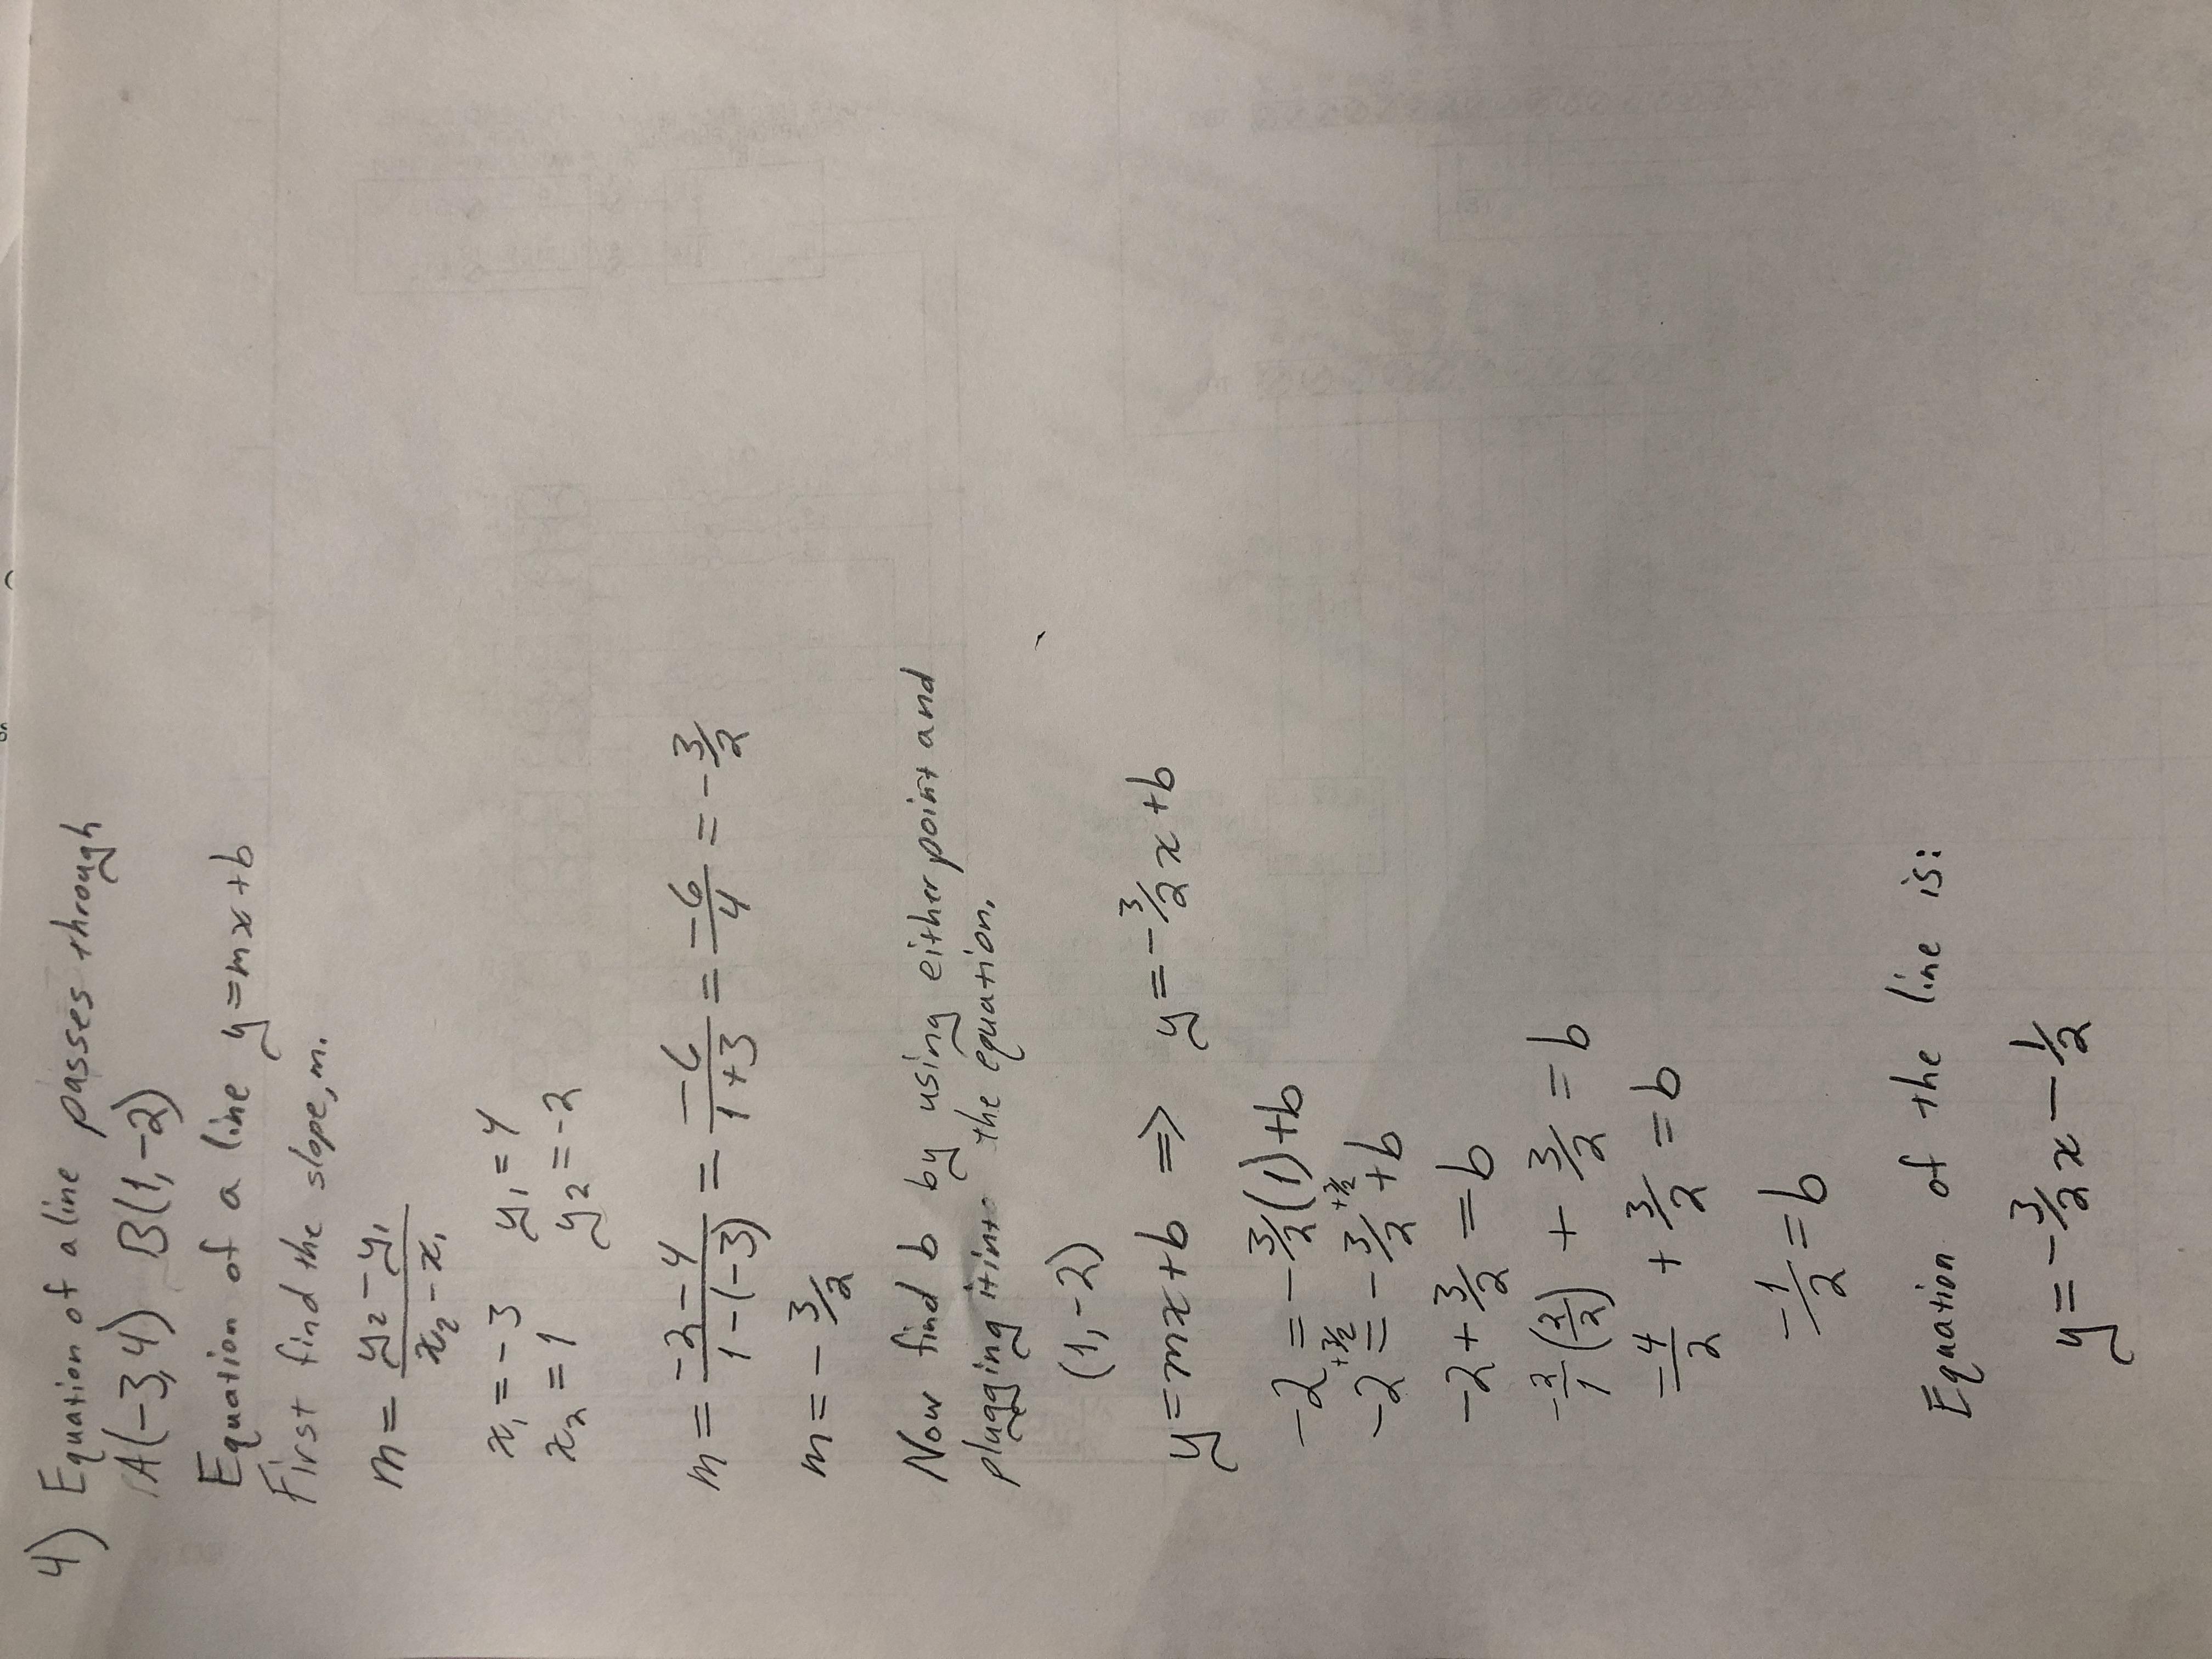 4) Equation of a line passes through
A(-3,4) B(1,-2)
Equation of a line y=mx+b
First find the slope, m.
m = (y₂-y₁)/(x₂-x₁)
x₁=-3 y₁=4
x₂=1 y₂=-2
m = (-2-4)/(1-(-3)) = -6/(1+3) = -6/4 = -3/2
m = -3/2
Now find b by using either point and
plugging it into the equation.
(1,-2)
y=mx+b ⇒ y=-3/2x+b
-2 = -3/2(1)+b
+3/2 +3/2
-2 = -3/2+b
-2+3/2=b
-2/1(2/2) + 3/2 = b
-4/2 + 3/2 = b
-1/2 = b
Equation of the line is:
y=-3/2x-1/2